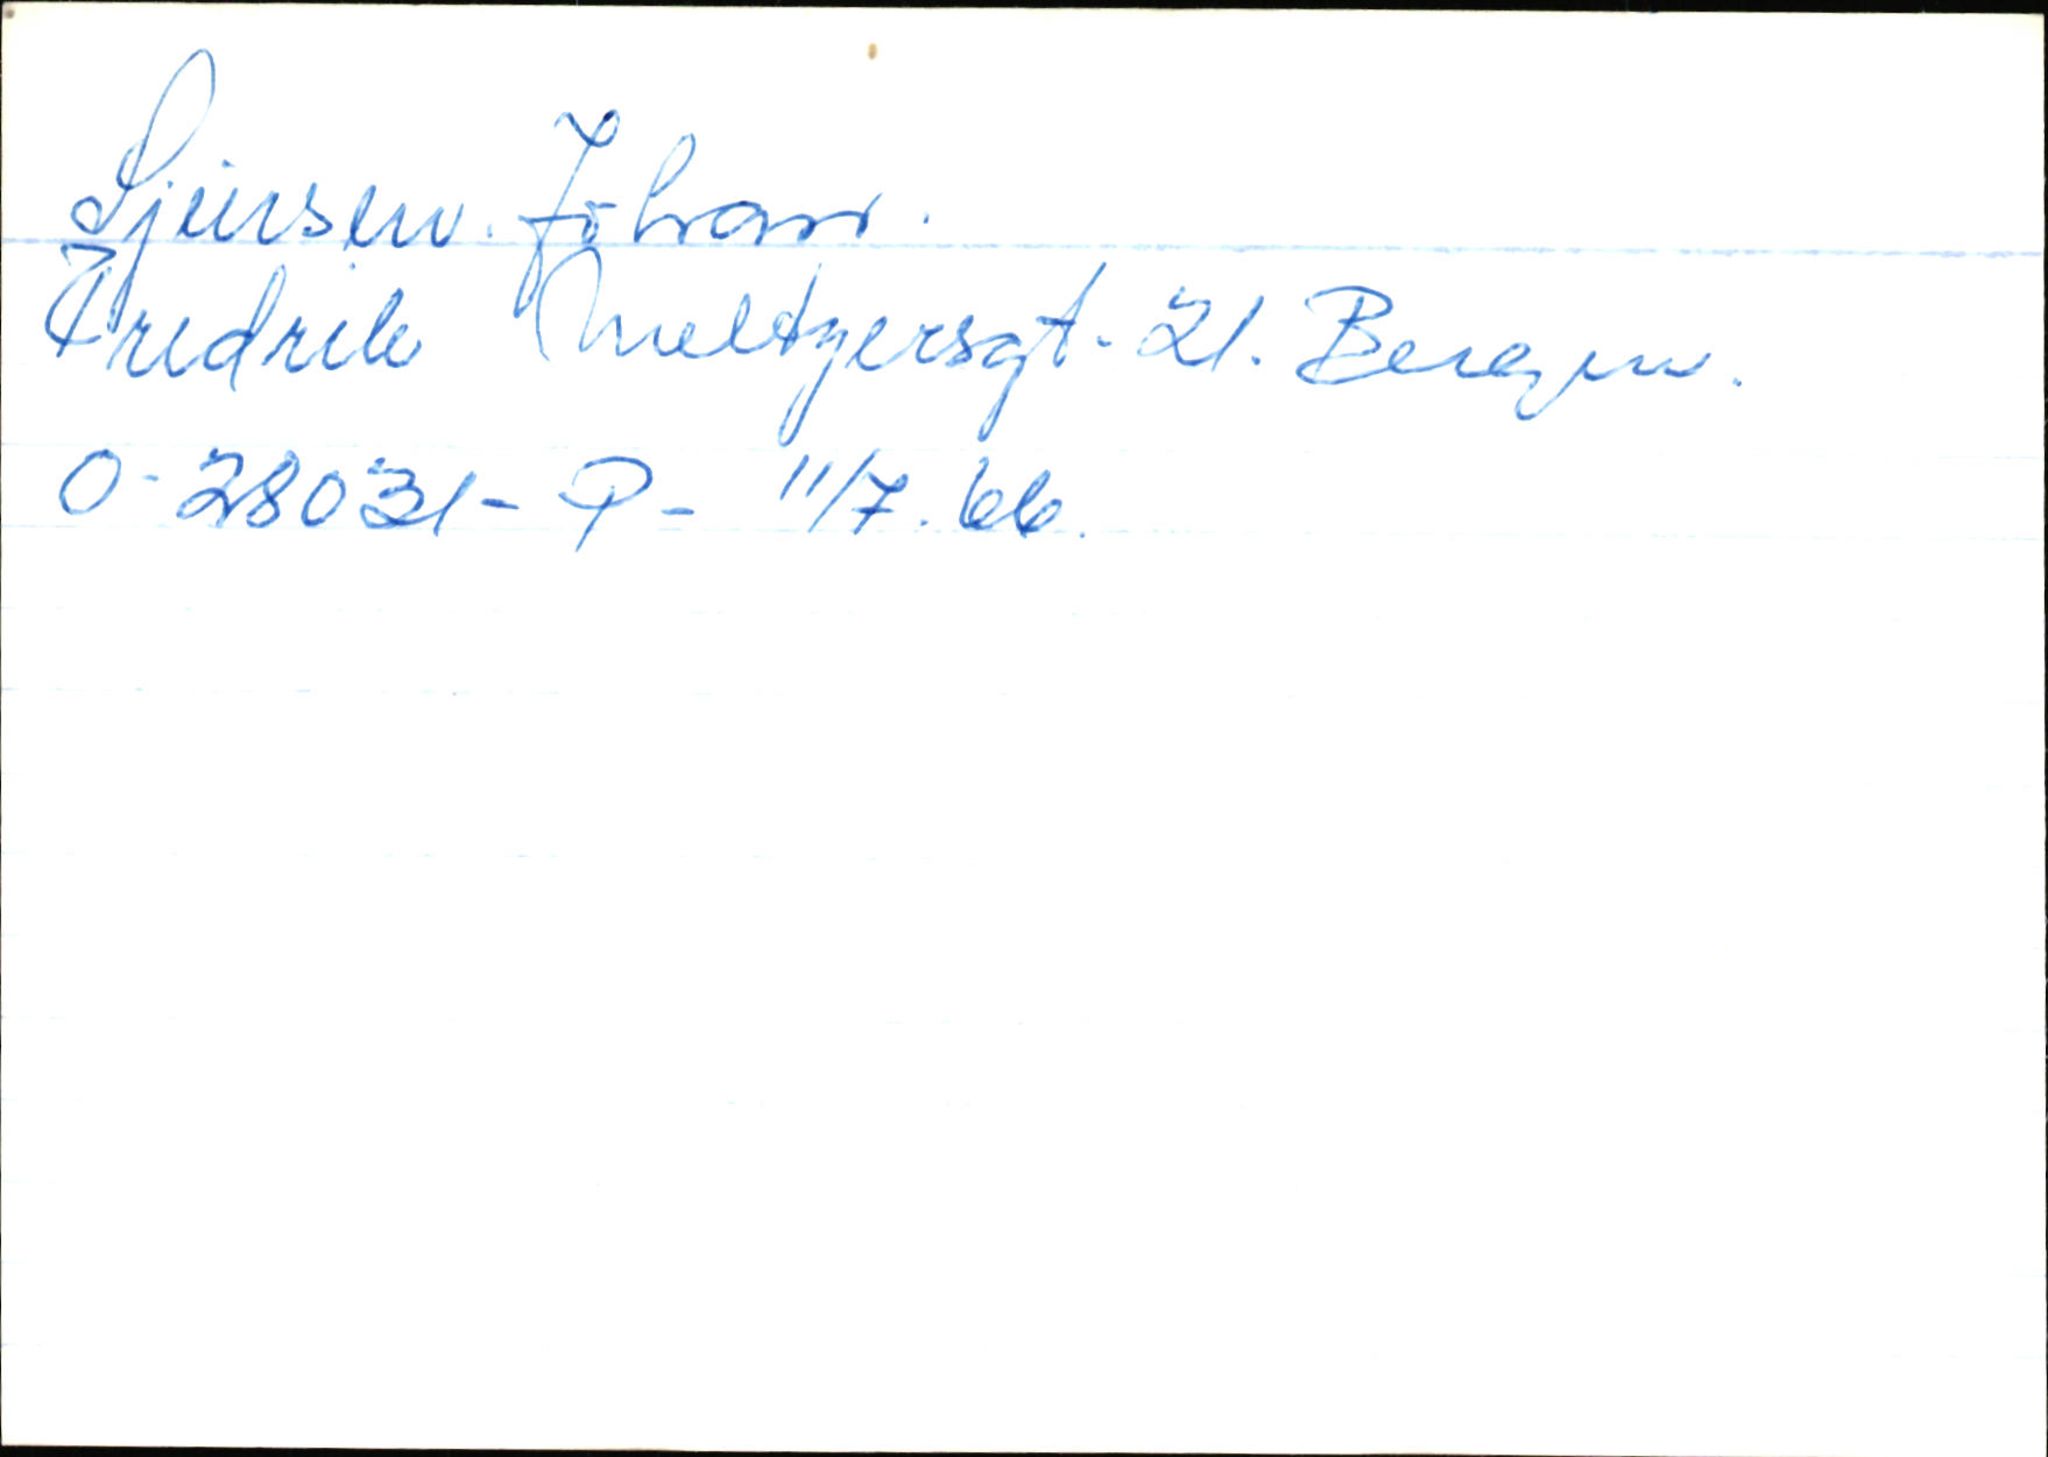 Gjersen. Johan.
Fredrik Meltzersgt. 21. Bergen.
O-28031-P- 11/7.66.